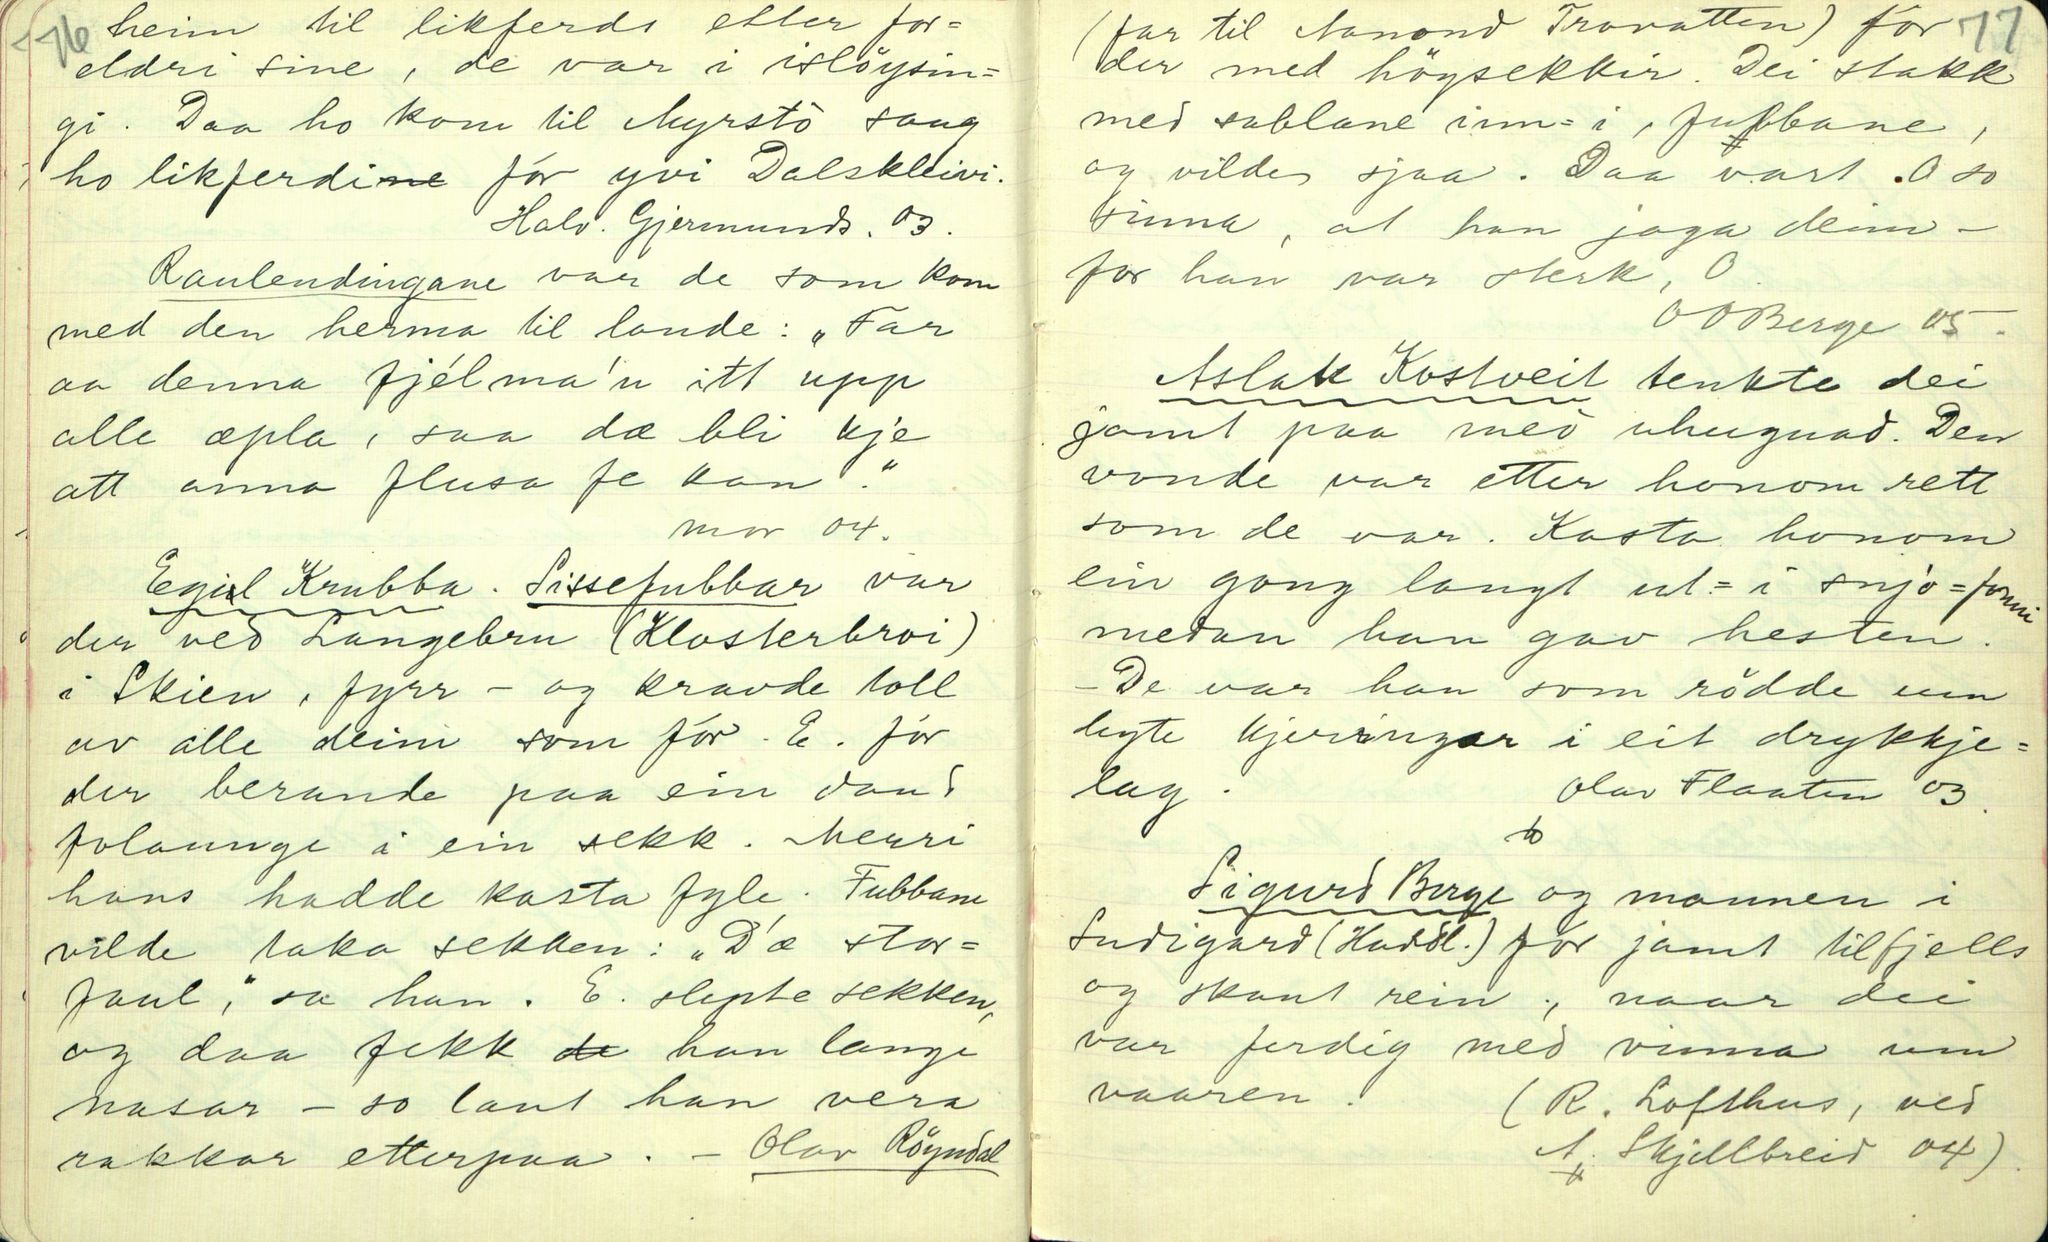 76
heim til likferds etter for=
eldri sine, de var i islöysin=
gi. Daa ho kom til Myrstö saag
ho likferdine fór yvi Dalskleivi.
Halv. Gjermunds. 03.
Raulendingane var de som kom
med den herma til lande: „Far
aa denna fjélma'n itt upp
alle æpla, saa dæ bli kje
att anna flusa fe kan."
mor 04.
Egil Krubba. Sissefubbar var
der ved Langebru (Klosterbroi)
i Skien, fyrr - og kravde toll
av alle deim som fór. E. fór
der berande paa ein daud
folaunge i ein sekk. Merri
hans hadde kasta fyle. Fubbane
vilde taka sekken: „D'æ stor=
faul," sa han. E. slepte sekken,
og daa fekk de han lange
nasar - so laut han vera
rakkar etterpaa. - Olav Röyndal
77
(far til Aanond Trovatten) fór
der med höysekkir. Dei stakk
med sablane inn=i, fubbane,
og vilde sjaa. Daa vart O so
sinna, at han jaga deim -
for han var sterk, O.
O O Berge 05.
Aslak Kostveit tenkte dei
jamt paa med uhugnad. Den
vonde var etter honom rett
som de var. Kasta honom
ein gong langt ut=i snjo=fonni
medan han gav hesten.
- De var han som rödde um
legte kjerringar i eit drykkje=
lag. Olav Flaaten 03.
Sigurd Berge og mannen i
Sudigard (Huddl.) fór jamt tilfjells
og skaut rein, naar dei
var ferdig med vinna um
vaaren.
(R. Lofthus, ved
A. Skjellbreid 04).